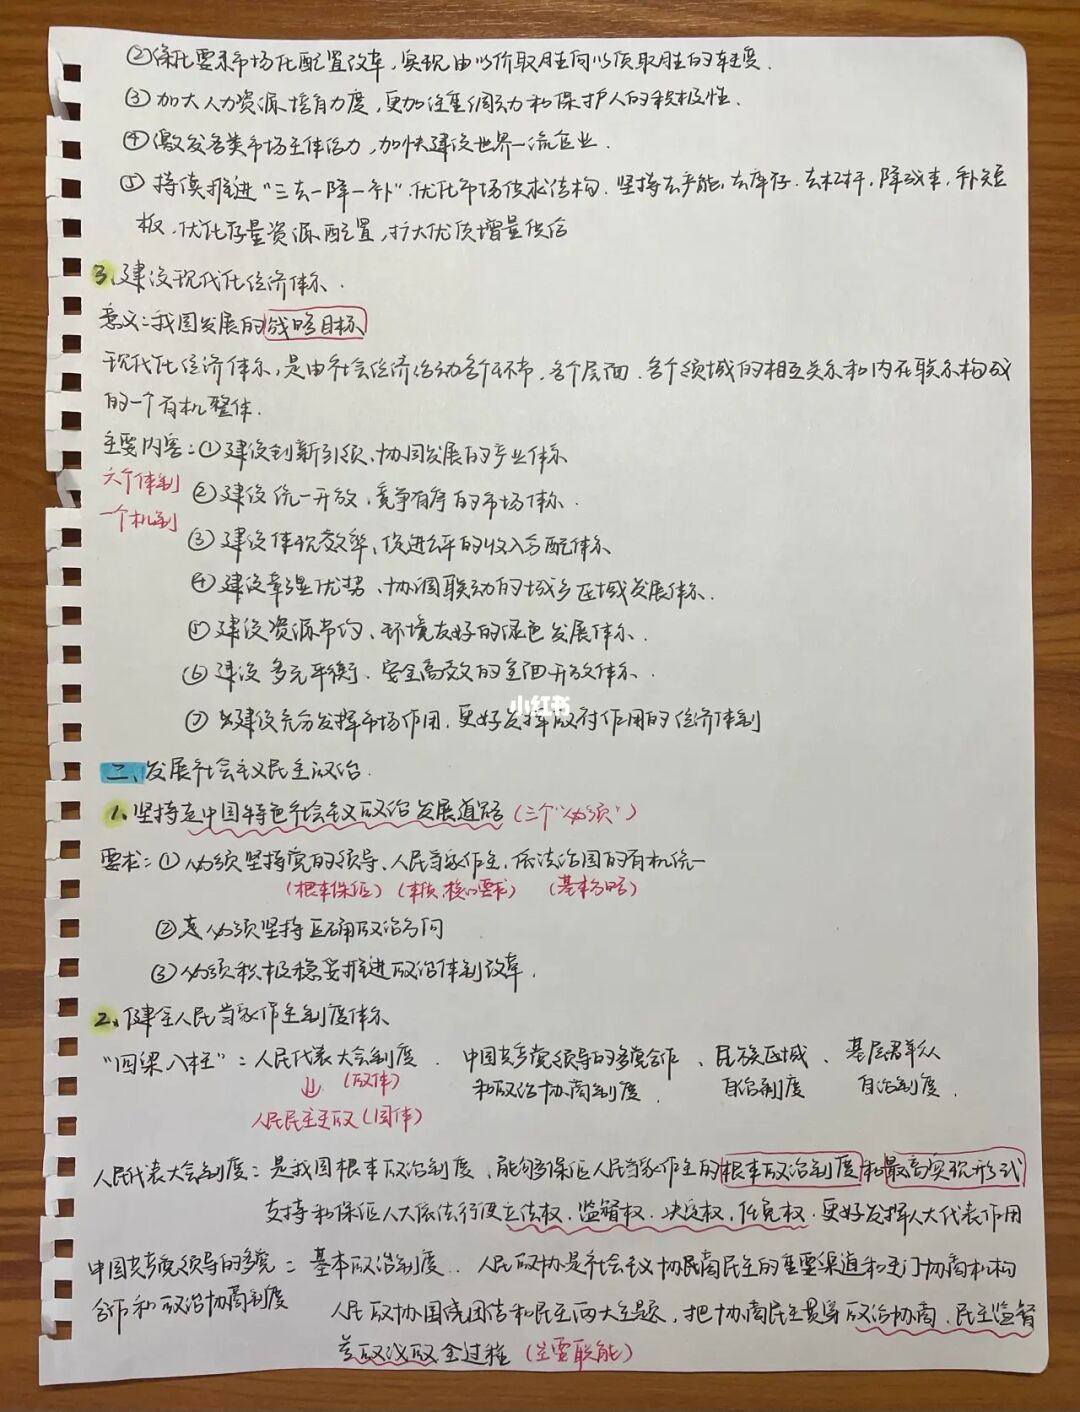 ②深化要素市场化配置改革,实现由以价取胜向以质取胜的转变.
③加大人力资源培育力度,更加注重调动和保护人的积极性.
④激发各类市场主体活力,加快建设世界一流企业.
⑤持续推进"三去一降一补".优化市场供求结构.坚持去产能、去库存.去杠杆,降成本,补短
板.优化存量资源配置,扩大优质增量供给
3.建设现代化经济体系.
意义:我国发展的战略目标
现代化经济体系,是由社会经济活动各个环节,各个层面.各个领域的相互关系和内在联系构成
的一个有机整体.
主要内容:①建设创新引领、协同发展的产业体系
六个体制
②建设统一开放,竞争有序的市场体系.
一个机制
③建设体现效率、促进公平的收入分配体系
④建设彰显优势、协调联动的城乡区域发展体系.
⑤建设资源节约、环境友好的绿色发展体系.
⑥建设多元平衡、安全高效的全面开放体系.
小红书
⑦建设充分发挥市场作用.更好发挥政府作用的经济体制
二、发展社会主义民主政治.
1.坚持走中国特色社会主义政治发展道路(三个"必须")
要求:①必须坚持党的领导、人民当家作主.依法治国的有机统一
(根本保证)(本质、核心要求)(基本方略)
②必须坚持正确政治方向
③必须积极稳妥推进政治体制改革.
2.健全人民当家作主制度体系
"四梁八柱":人民代表大会制度.中国共产党领导的多党合作、民族区域、基层群众
(政体)和政治协商制度.自治制度 自治制度.
人民民主专政(国体)
人民代表大会制度:是我国根本政治制度、能够保证人民当家作主的根本政治制度和最高实现形式
支持和保证人大依法行使立法权.监督权.决定权.任免权.更好发挥人大代表作用
中国共产党领导的多党:基本政治制度.人民政协是社会主义协商民主的重要渠道和专门协商机构
合作和政治协商制度 人民政协围绕团结和民主两大主题,把协商民主贯穿政治协商.民主监督
参政议政全过程(主要职能)